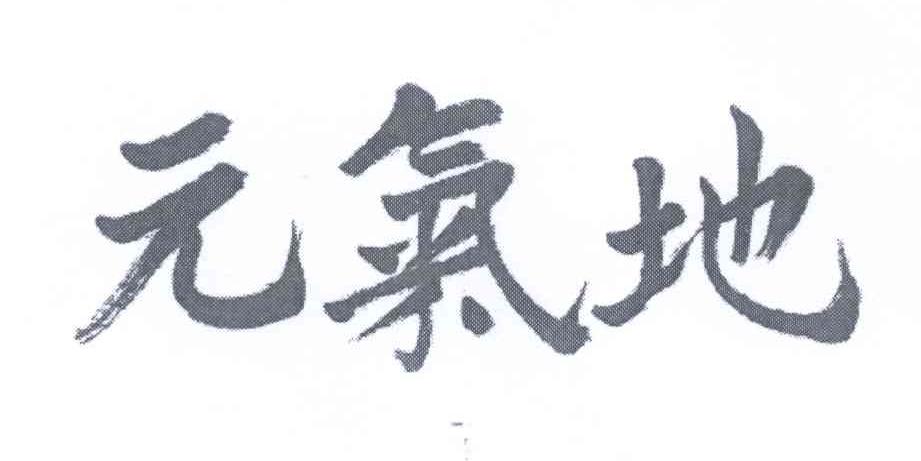 元氣地